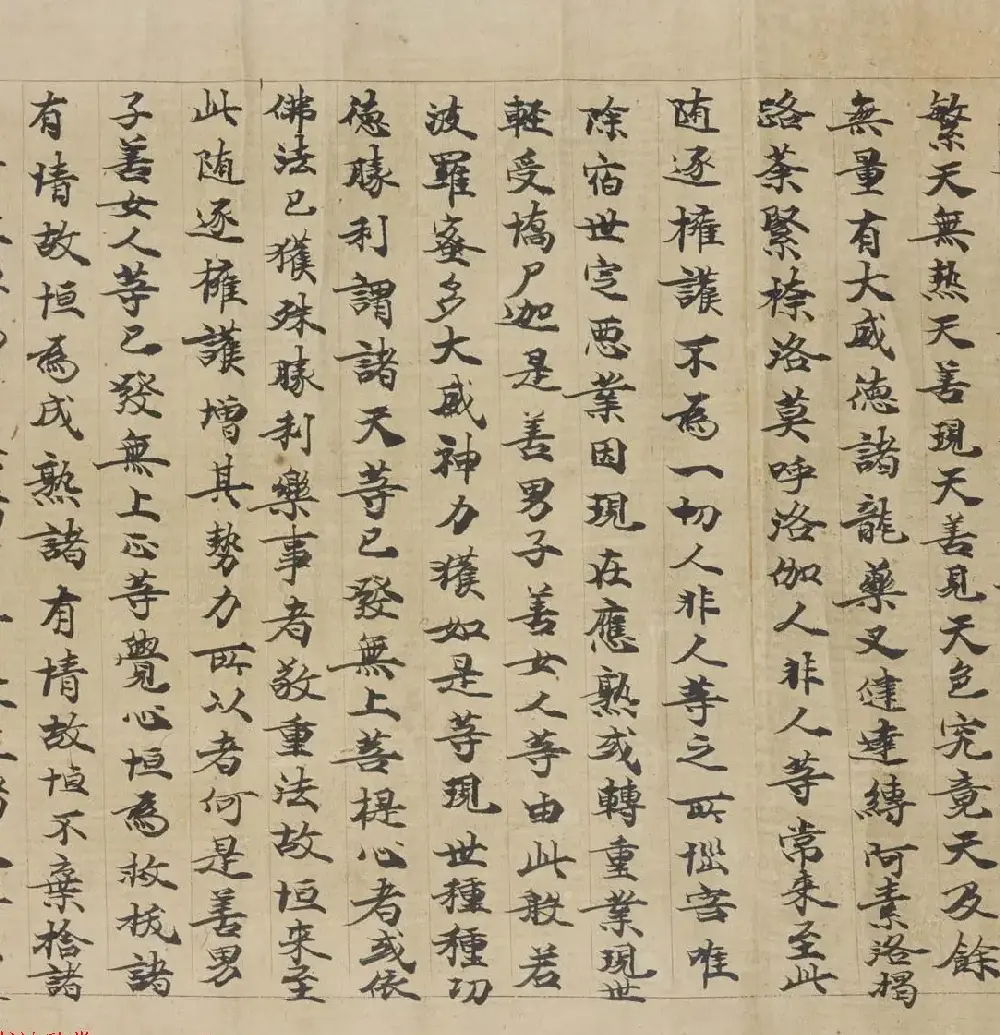 繁天無熱天善現天善見天色究竟天及餘
無量有大威德諸龍藥叉健達縛阿素洛揭
路荼緊捺洛莫呼洛伽人非人等常來至此
随逐擁護不為一切人非人等之所惱害唯
除宿世定惡業因現在應熟或轉重業現世
輕受憍尸迦是善男子善女人等由此般若
波羅蜜多大威神力獲如是等現世種種功
德勝利謂諸天等已發無上菩提心者或依
佛法已獲殊勝利樂事者敬重法故恒来至
此随逐擁護增其勢力所以者何是善男
子善女人等已發無上正等覺心恒為救拔諸
有情故恒為成熟諸有情故恒不棄捨諸